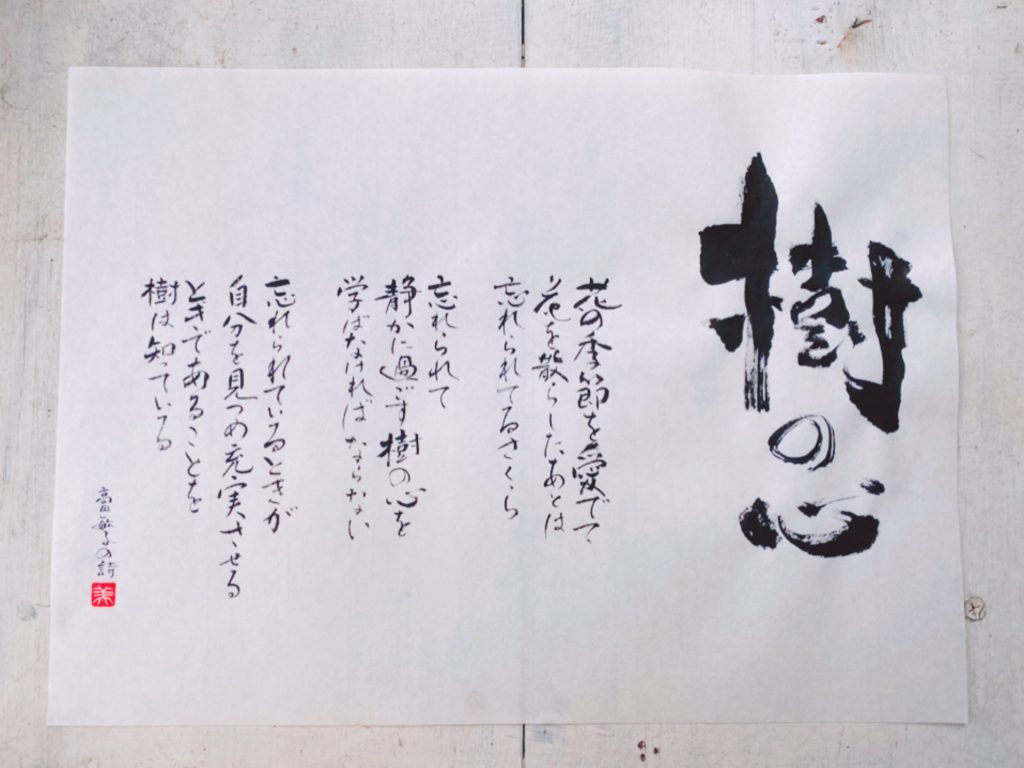 樹の心
花の季節を愛でて
花を散らしたあとは
忘れられてるさくら
忘れられて
静かに過ごす樹の心を
学ばなければならない
忘れられているときが
自分を見つめ充実させる
ときであることを
樹は知っている
高田敏子の詩
美